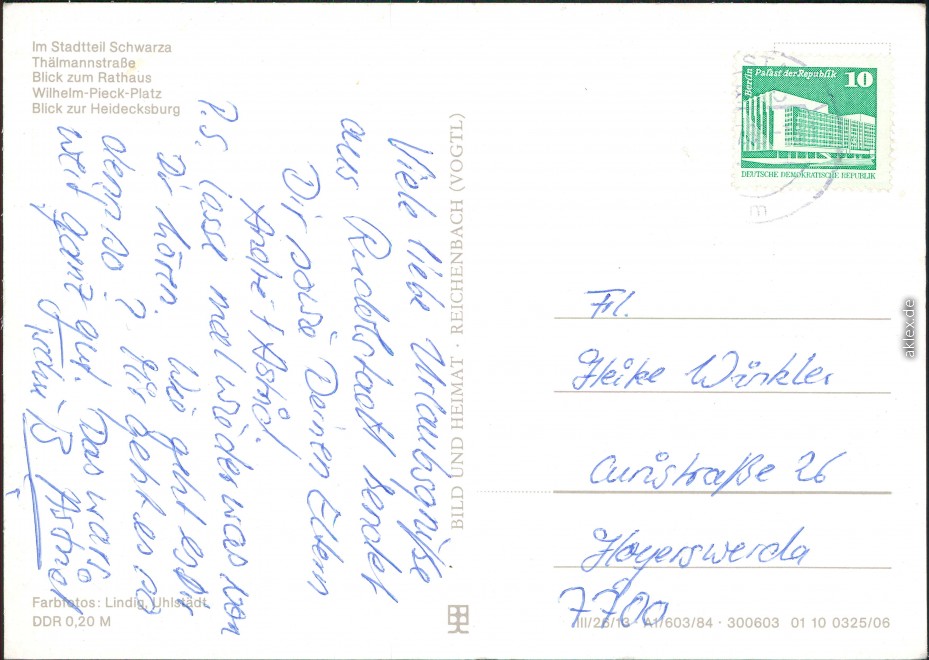 Im Stadtteil Schwarza
Thälmannstraße
Blick zum Rathaus
Wilhelm-Pieck-Platz
Blick zur Heidecksburg
Viele liebe Urlaubsgrüße
aus Rudolstadt sendet
Dir sowie Deinen Eltern
André + Astrid.
P.S. lasse mal wieder was von
Dir hören. Wie geht es Dir
denn so? Mir geht es so
weit ganz gut. Das war's
Tschü ß Astrid
BILD UND HEIMAT · REICHENBACH (VOGTL)
Berlin Palast der Republik 10
DEUTSCHE DEMOKRATISCHE REPUBLIK
Fl.
Heike Winkler
Curiestraße 26
Hoyerswerda
7700
Farbfotos: Lindig, Uhlstädt
DDR 0,20 M
III/26/13 A1/603/84 · 300603 01 10 0325/06
aklex.de